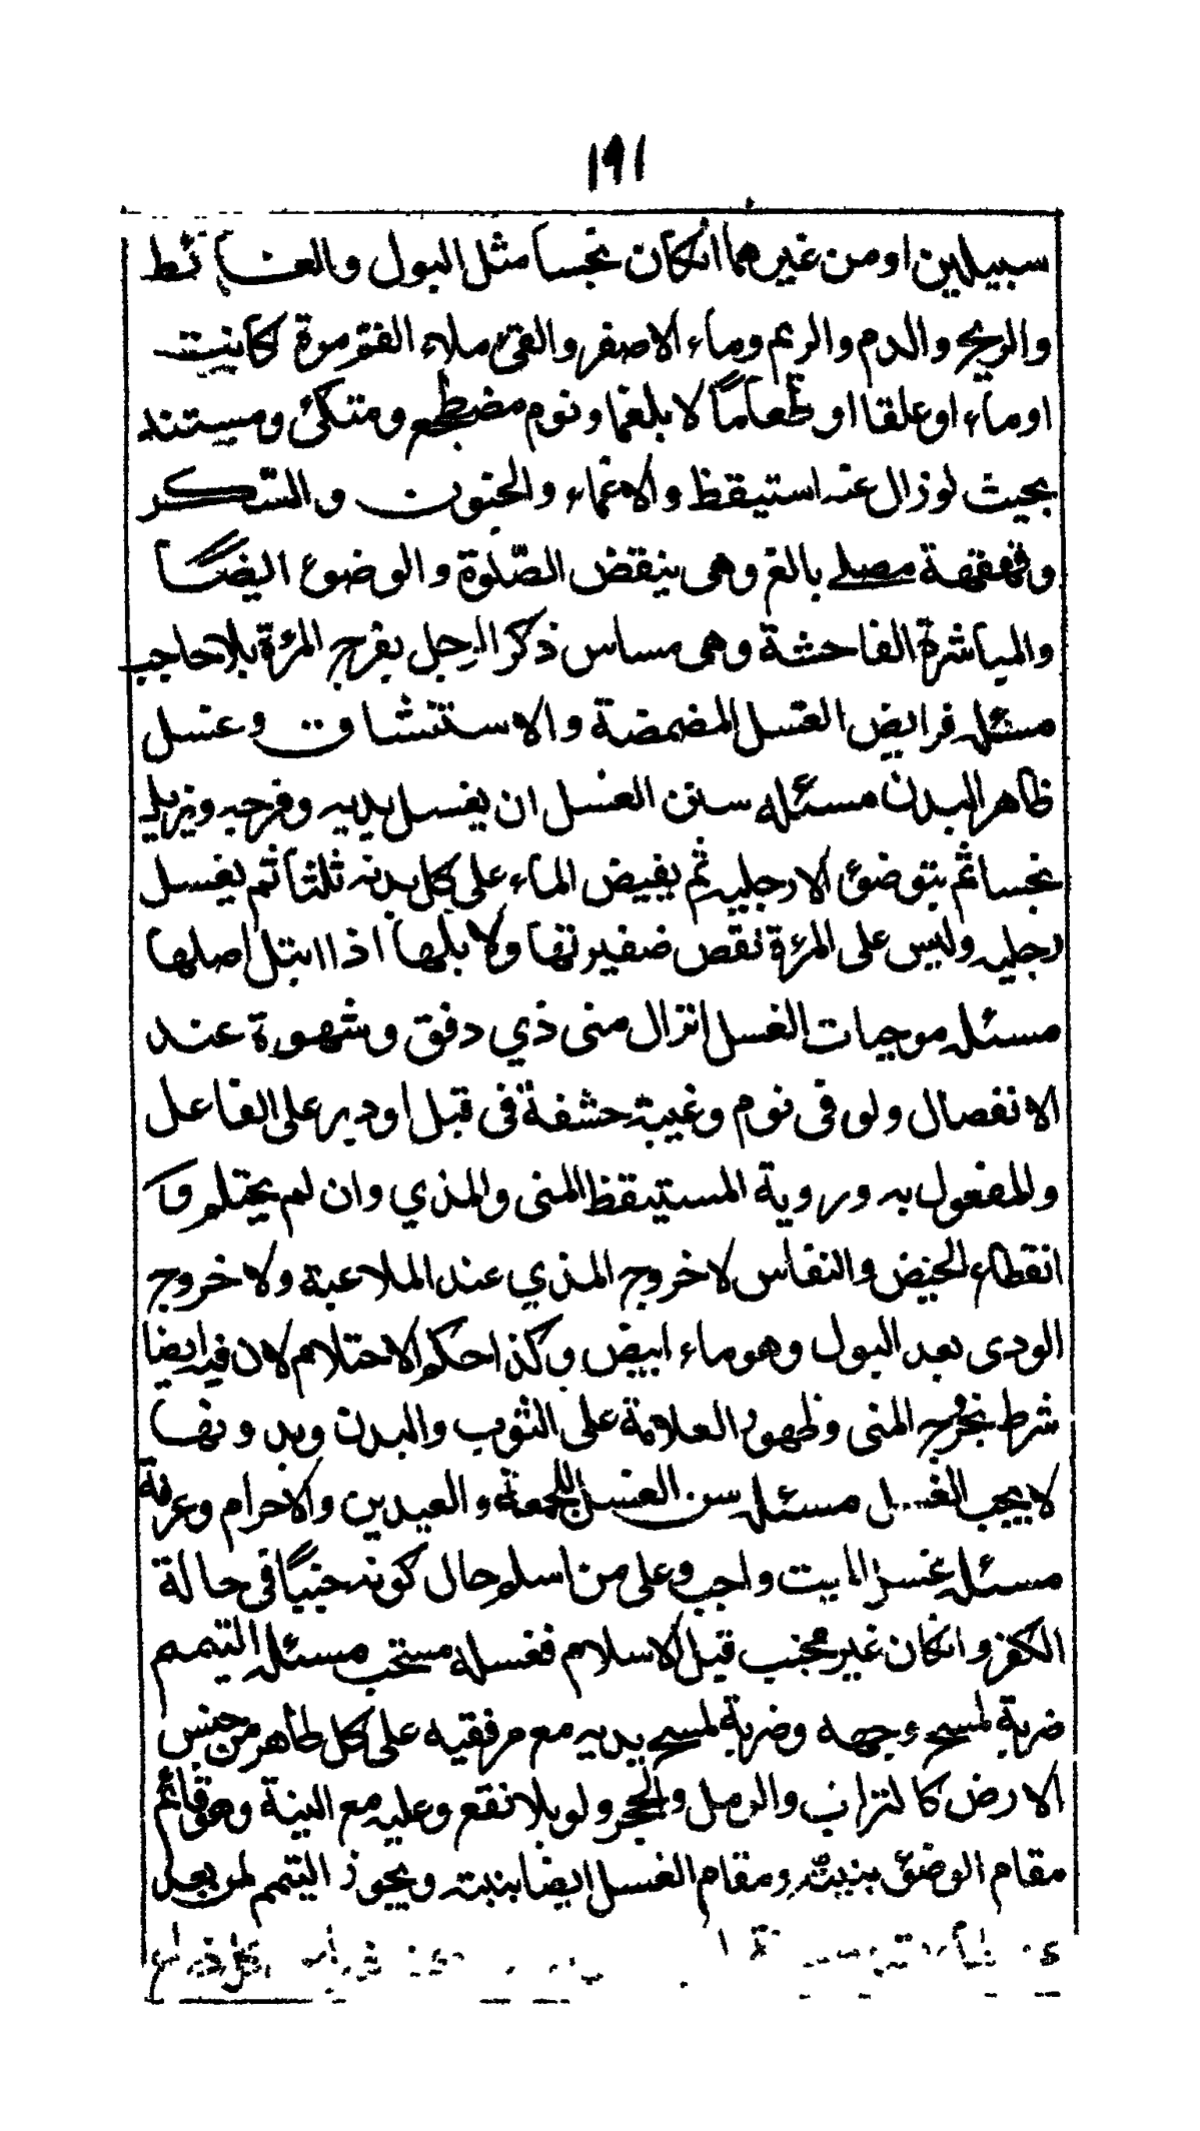 ١٩١
سبيلين او من غيرهما انكان نجسا مثل البول والغائط
والريح والدم والريم وماء الاصفر والقئ ملاء الفم مرة كانت
او ماء او علقا او طعاماً لا بلغما ونوم مضطجع ومتكئ ومستند
بحيث لو زال عنه استيقظ والاغماء والجنون والسّكر
وقهقهة مصلے بالغ وهى ينقض الصّلوة والوضوء ايضًا
والمباشرة الفاحشة وهى مساس ذكر الرجل بفرج المرءة بلا حاجب
مسئله فرايض الغسل المضمضة والاستنشاق وغسل
ظاهر البدن مسئله سنن الغسل ان يغسل يديه وفرجه ويزيل
نجسا ثم يتوضئ الا رجليه ثم يفيض الماء على كل بدنه ثلثا ثم يغسل
رجليه وليس على المرءة نقص ضفيرتها ولا بلها اذا ابتل اصلها
مسئله موجبات الغسل انزال منى ذي دفق وشهوة عند
الانفصال ولو فى نوم وغيبة حشفة فى قبل او دبر على الفاعل
والمفعول به وروية المستيقظ المنى والمذي وان لم يحتلم و
انقطاء الحيض والنفاس لا خروج المذي عند الملاعبة ولا خروج
الودى بعد البول وهو ماء ابيض وكذا حكم الاحتلام لان فيه ايضا
شرط بخروج المنى وظهور العلامة على الثوب والبدن وبدونها
لا يجب الغسل مسئله سن الغسل للجمعة والعيدين والاحرام وعرفة
مسئله غسل الميت واجب وعلى من اسلم حال كونه جنبًا فى حالة
الكفر وانكان غير مجنب قبل الاسلام فغسله مستحب مسئله التيمم
ضربة لمسح وجهه وضربة لمسح يديه مع مرفقيه على كل طاهر من جنس
الارض كالتراب والرمل والحجر ولو بلا نقع وعليه مع النية وهو قائم
مقام الوضوء بنيته ومقام الغسل ايضا بنيته ويجوز التيمم لمن بعد